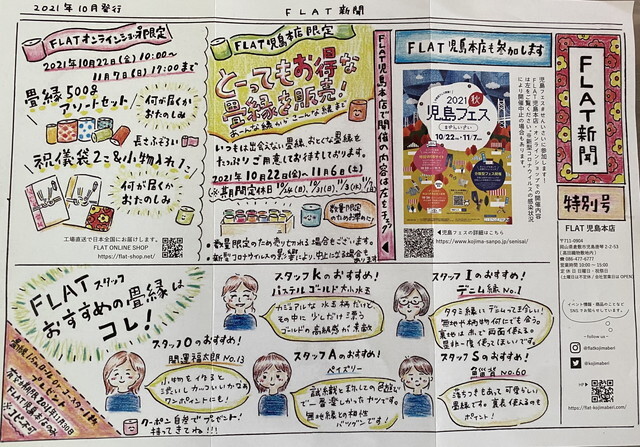 2021年10月発行
FLAT新聞
FLATオンラインショップ限定
2021年10月22日(金)10:00〜
11月7日(日)17:00まで
畳縁500g
アソートセット
何が届くか
おたのしみ
長さふぞろい
祝儀袋2コ&小物入れ1コ
何が届くか
おたのしみ
工場直送で日本全国にお届けします。
FLAT ONLINE SHOP
https://flat-shop.net/
FLAT児島本店限定
とってもお得な
畳縁を販売!
あーんな縁からこーんな縁まで
いつもは出会えない畳縁、おとくな畳縁を
たっぷりご用意してお待ちしております。
2021年10月22日(金)〜11月6日(土)
数量限定
のためお早めに!
・数量限定のため売り切れる場合もございます。
・新型コロナウィルスの影響により、中止になる場合も
あります
FLAT児島本店で開催の内容は左をチェック
FLAT児島本店も参加します
2021 秋
児島フェス
10.22 11.7
児島フェスせんいさいに参加します!
FLAT児島本店・オンラインショップでの開催内容
は左をご覧ください。新型コロナウィルスの感染状況
により開催中止の場合もあります。
◀児島フェスの詳細はこちら
https://www.kojima-sanpo.jp/senisai/
FLAT新聞
特別号
FLAT 児島本店
〒711-0904
岡山県倉敷市児島唐琴2-2-53
(高田織物敷地内)
☎ 086-477-6777
営業時間 10:00 〜 15:00
定 休 日 日曜日・祝祭日
(土曜日は不定休/会社営業日はOPEN)
イベント情報・商品のことなど
SNSでお知らせしています。
@flatkojimaberi
@kojimaberi
HP▶
https://flat-kojimaberi.com/
FLATスタッフ
おすすめの畳縁は
コレ!
クーポン自参でプレゼント!
持ってきてね!!!
スタッフKのおすすめ!
パステルゴールド大小水玉
カジュアルな水玉柄だけど
その中に少しだけ漂う
ゴールドの高級感が素敵
スタッフIのおすすめ!
デニム縁 No.1
タタミ縁にデニムってまさしい!
無地や柄物何にでも合う。
生地は表で両面使える
是非一度使ってほしいです。
スタッフOのおすすめ!
開運福太郎 No.13
小物を作ると
渋いしカッコいいかな
ワンポイントにも!
スタッフAのおすすめ!
ペイズリー
試織縁と玉虫糸との色遊びで
一番楽しかったヤツです。
無地縁との相性
バツグンです!
スタッフSのおすすめ!
No.60
落ちつきもあって可愛らしい
畳縁です。裏表使えるのも
ポイント!